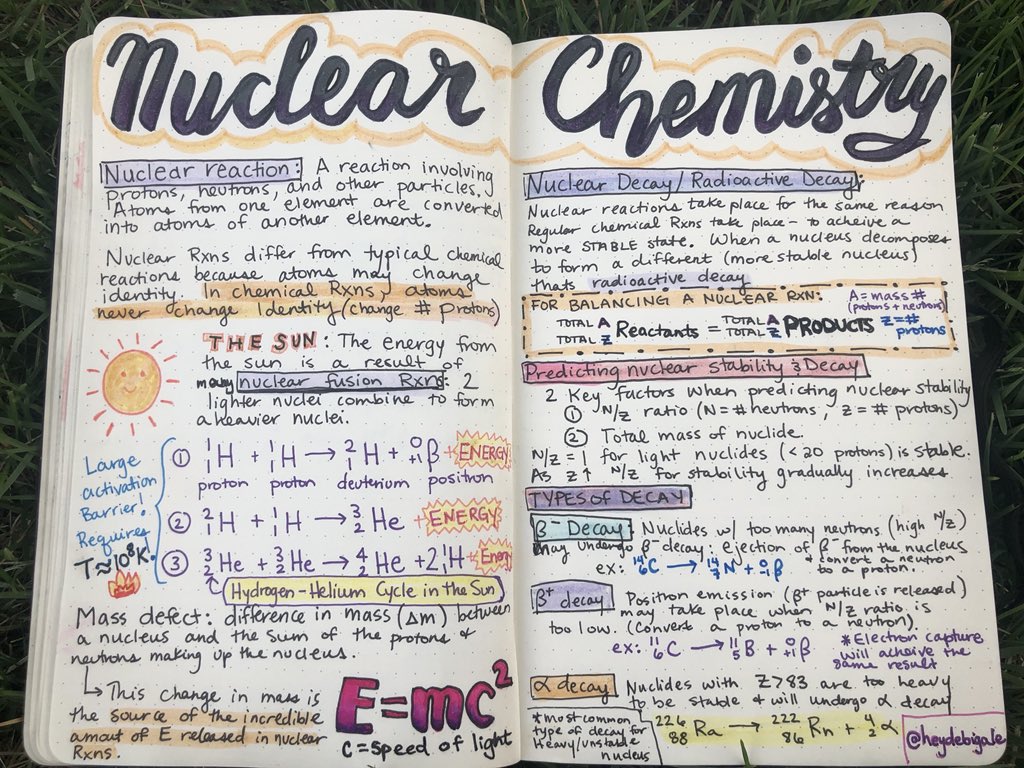 Nuclear Chemistry
Nuclear reaction: A reaction involving
protons, neutrons, and other particles,
Atoms from one element are converted
into atoms of another element.
Nuclear Rxns differ from typical chemical
reactions because atoms may change
identity. In chemical Rxns, atoms
never change Identity (change # protons)
THE SUN: The energy from
the sun is a result of
many nuclear fusion Rxns: 2
lighter nuclei combine to form
a heavier nuclei.
Large
activation
Barrier!
Requires
T≈10⁸K.
① ¹₁H + ¹₁H → ²₁H + ⁰₊₁β + ENERGY
proton proton deuterium positron
② ²₁H + ¹₁H → ³₂He + ENERGY
③ ³₂He + ³₂He → ⁴₂He + 2¹₁H + Energy
Hydrogen-Helium Cycle in the Sun
Mass defect: difference in mass (Δm) between
a nucleus and the sum of the protons &
neutrons making up the nucleus.
↳ This change in mass is
the source of the incredible
amout of E released in nuclear
Rxns.
E=mc²
C=speed of light
Nuclear Decay/Radioactive Decay:
Nuclear reactions take place for the same reason
Regular chemical Rxns take place – to acheive a
more STABLE state. When a nucleus decomposes
to form a different (more stable nucleus)
thats radioactive decay
FOR BALANCING A NUCLEAR RXN:
TOTAL A TOTAL Z Reactants = TOTAL A TOTAL Z PRODUCTS
A=mass #
(protons + neutrons)
Z=#
protons
Predicting nuclear stability & Decay
2 Key factors when predicting nuclear stability
① N/z ratio (N=# neutrons, z=# protons)
② Total mass of nuclide.
N/z = 1 for light nuclides (<20 protons) is stable.
As z↑ N/z for stability gradually increases.
TYPES OF DECAY
β⁻ Decay: Nuclides w/ too many neutrons (high N/z)
may undergo β⁻ decay: ejection of β⁻ from the nucleus
& convert a neutron
to a proton.
ex: ¹⁴₆C → ¹⁴₇N + ⁰₋₁β
β⁺ decay: Positron emission (β⁺ particle is released)
may take place when N/z ratio is
too low. (convert a proton to a neutron).
ex: ¹¹₆C → ¹¹₅B + ⁰₊₁β
*Electron capture
will acheive the
same result
α decay: Nuclides with Z>83 are too heavy
to be stable & will undergo α decay
*most common
type of decay for
Heavy/unstable
nucleus
²²⁶₈₈Ra → ²²²₈₆Rn + ⁴₂α
@heydebigale